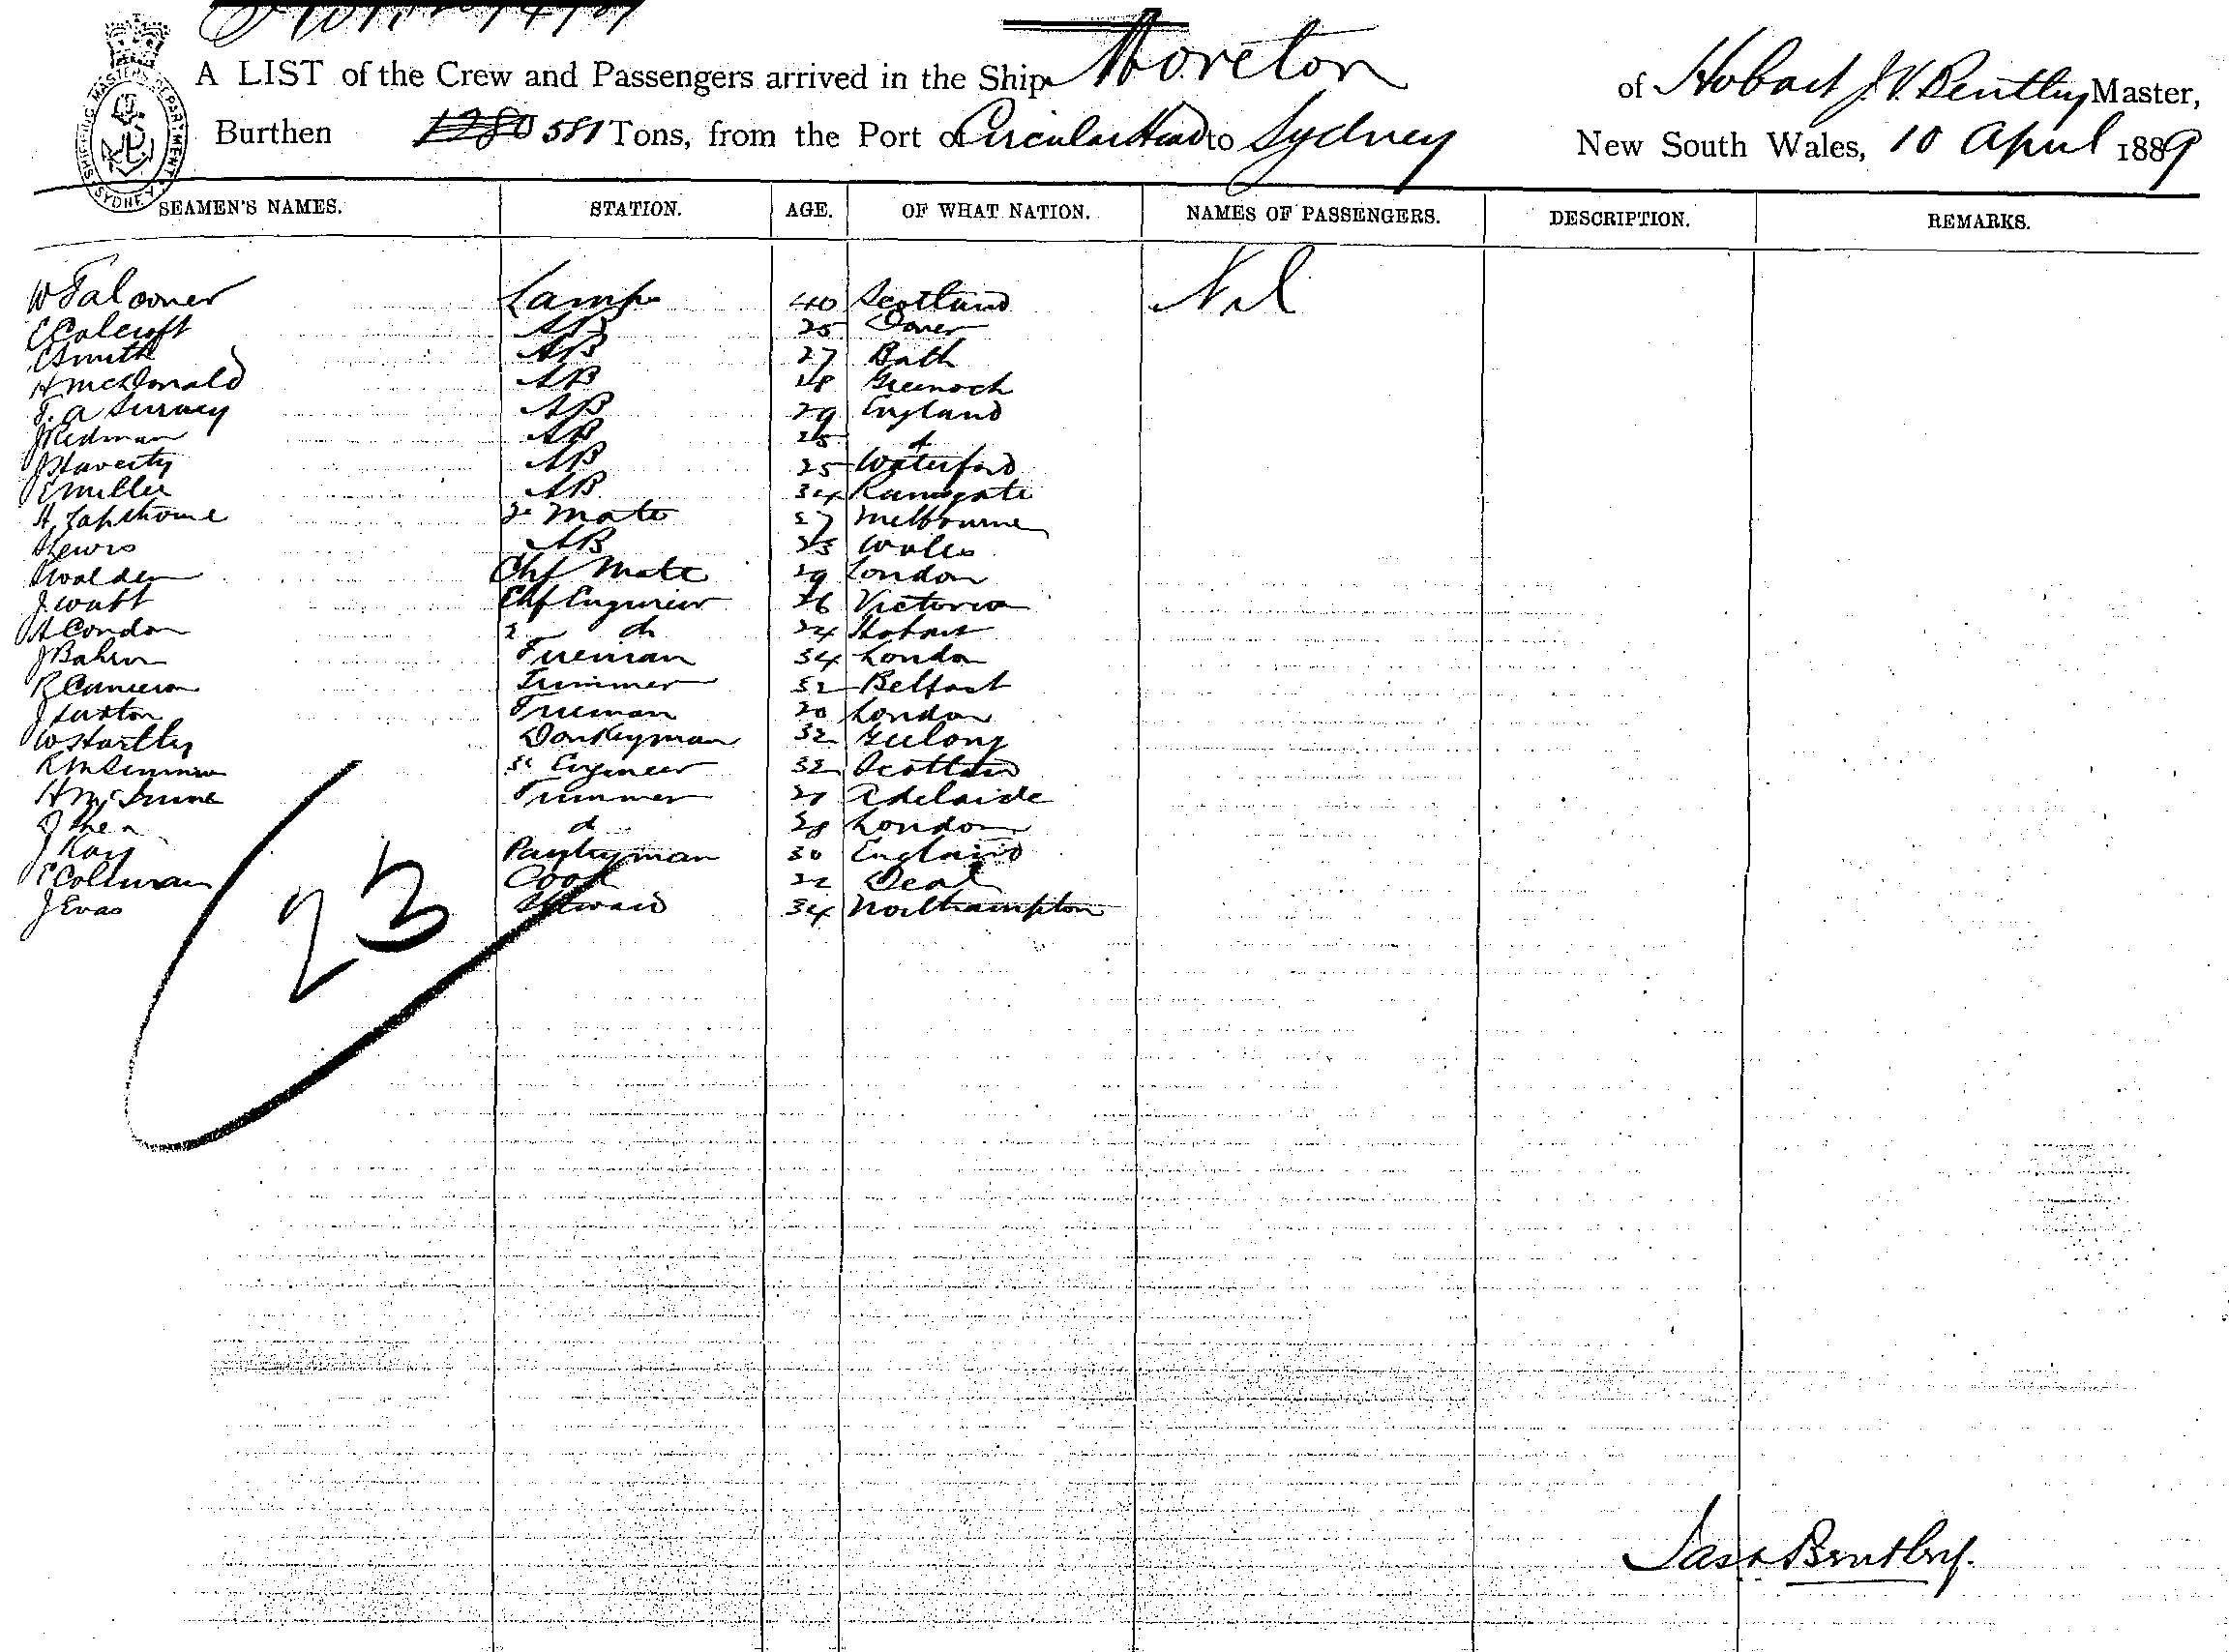 A LIST of the Crew and Passengers arrived in the Ship Moreton of Hobart J. V. Bentley Master,
Burthen 1280 581 Tons, from the Port of Circular Head to Sydney New South Wales, 10 April 1889
SHIPPING MASTER'S DEPARTMENT SYDNEY
SEAMEN'S NAMES. STATION. AGE. OF WHAT NATION. NAMES OF PASSENGERS. DESCRIPTION. REMARKS.
W Falconer Lamps 40 Scotland Nil
C Calcroft AB 25 Dover
C Smith AB 27 Bath
H McDonald AB 28 Greenock
T. A Survey AB 29 England
J Redman AB 25 d
J Haverty AB 25 Waterford
C Miller AB 34 Ramsgate
H Tapthorne 2 Mate 27 Melbourne
Lewis AB 25 Wales
Walden Chf Mate 29 London
J. Watt Chf Engineer 36 Victoria
A Condon 2 do 24 Hobart
J Bahen Fireman 34 London
R Cameron Trimmer 32 Belfast
J Luxton Fireman 20 London
W Hartley Donkeyman 32 Geelong
R 3d Engineer 32 Scotland
H Trimmer 27 Adelaide
J d 28 London
J Kay Pantryman 30 England
E Coleman Cook 22 Deal
J Evas Steward 34 Northampton
23
Jas Bentley.